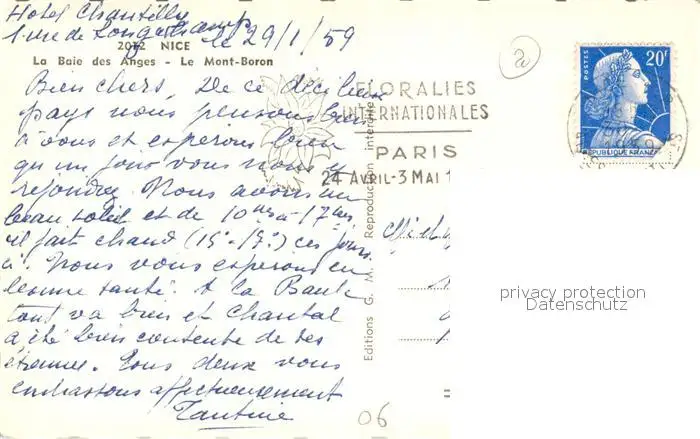 Hotel Chantilly
1 rue de Longchamp le 29/1/59
2012 NICE
La Baie des Anges - Le Mont-Boron
Bien chers, De ce délicieux
pays nous pensons bien
à vous et espérons bien
qu'un jour vous nous y
rejoindrez. Nous avons un
beau soleil et de 10 hrs à 17 hrs
il fait chaud (15°-17°) ces jours
ci. Nous vous espérons en
bonne santé. A la Baule
tout va bien et Chantal
a été bien contente de ses
étrennes. Tous deux vous
embrassons affectueusement
Tantine
06
Editions G. M. Reproduction interdite
FLORALIES
INTERNATIONALES
PARIS
24 AVRIL-3 MAI 1
POSTES
20F
REPUBLIQUE FRANÇAISE
privacy protection
Datenschutz